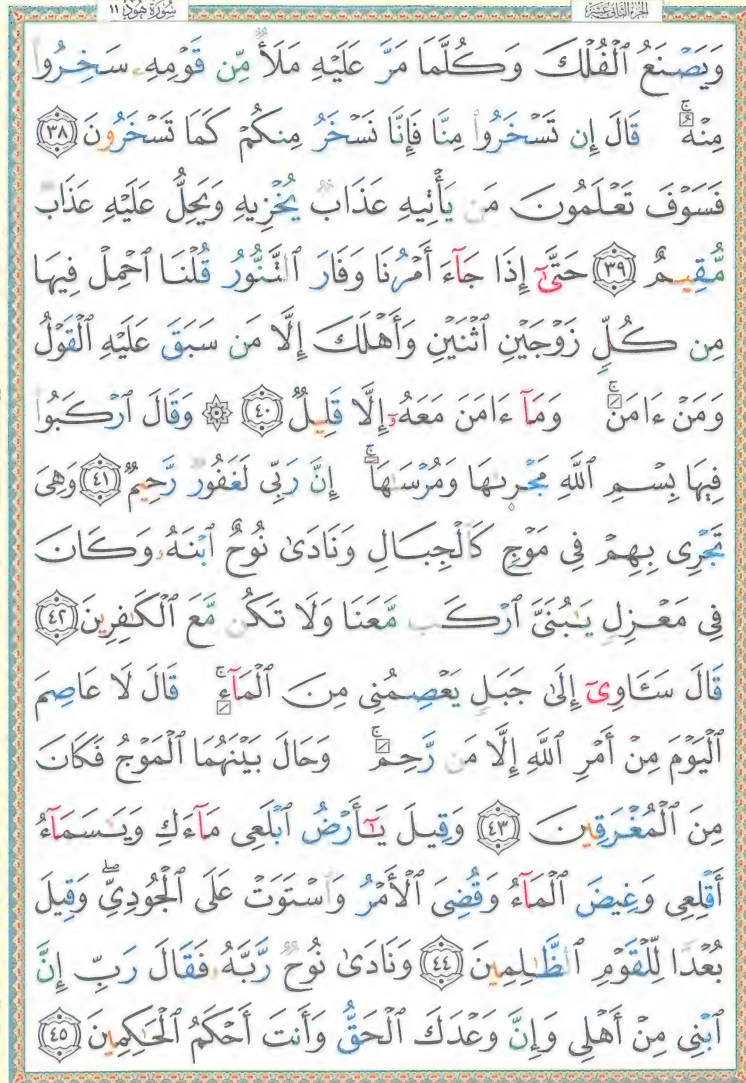 سُورَةُ هُودٍ ١١
الجُزْءُ الثَّانِي عَشَرَ
وَيَصْنَعُ ٱلْفُلْكَ وَكُلَّمَا مَرَّ عَلَيْهِ مَلَأٌ مِّن قَوْمِهِۦ سَخِرُوا۟
مِنْهُ ۚ قَالَ إِن تَسْخَرُوا۟ مِنَّا فَإِنَّا نَسْخَرُ مِنكُمْ كَمَا تَسْخَرُونَ ٣٨
فَسَوْفَ تَعْلَمُونَ مَن يَأْتِيهِ عَذَابٌ يُخْزِيهِ وَيَحِلُّ عَلَيْهِ عَذَابٌ
مُّقِيمٌ ٣٩ حَتَّىٰٓ إِذَا جَآءَ أَمْرُنَا وَفَارَ ٱلتَّنُّورُ قُلْنَا ٱحْمِلْ فِيهَا
مِن كُلٍّ زَوْجَيْنِ ٱثْنَيْنِ وَأَهْلَكَ إِلَّا مَن سَبَقَ عَلَيْهِ ٱلْقَوْلُ
وَمَنْ ءَامَنَ ۚ وَمَآ ءَامَنَ مَعَهُۥٓ إِلَّا قَلِيلٌ ٤٠ ۞ وَقَالَ ٱرْكَبُوا۟
فِيهَا بِسْمِ ٱللَّهِ مَجْر۪ىٰهَا وَمُرْسَىٰهَآ ۚ إِنَّ رَبِّى لَغَفُورٌ رَّحِيمٌ ٤١ وَهِىَ
تَجْرِى بِهِمْ فِى مَوْجٍ كَٱلْجِبَالِ وَنَادَىٰ نُوحٌ ٱبْنَهُۥ وَكَانَ
فِى مَعْزِلٍ يَـٰبُنَىَّ ٱرْكَب مَّعَنَا وَلَا تَكُن مَّعَ ٱلْكَـٰفِرِينَ ٤٢
قَالَ سَـَٔاوِىٓ إِلَىٰ جَبَلٍ يَعْصِمُنِى مِنَ ٱلْمَآءِ ۚ قَالَ لَا عَاصِمَ
ٱلْيَوْمَ مِنْ أَمْرِ ٱللَّهِ إِلَّا مَن رَّحِمَ ۚ وَحَالَ بَيْنَهُمَا ٱلْمَوْجُ فَكَانَ
مِنَ ٱلْمُغْرَقِينَ ٤٣ وَقِيلَ يَـٰٓأَرْضُ ٱبْلَعِى مَآءَكِ وَيَـٰسَمَآءُ
أَقْلِعِى وَغِيضَ ٱلْمَآءُ وَقُضِىَ ٱلْأَمْرُ وَٱسْتَوَتْ عَلَى ٱلْجُودِىِّ ۖ وَقِيلَ
بُعْدًا لِّلْقَوْمِ ٱلظَّـٰلِمِينَ ٤٤ وَنَادَىٰ نُوحٌ رَّبَّهُۥ فَقَالَ رَبِّ إِنَّ
ٱبْنِى مِنْ أَهْلِى وَإِنَّ وَعْدَكَ ٱلْحَقُّ وَأَنتَ أَحْكَمُ ٱلْحَـٰكِمِينَ ٤٥